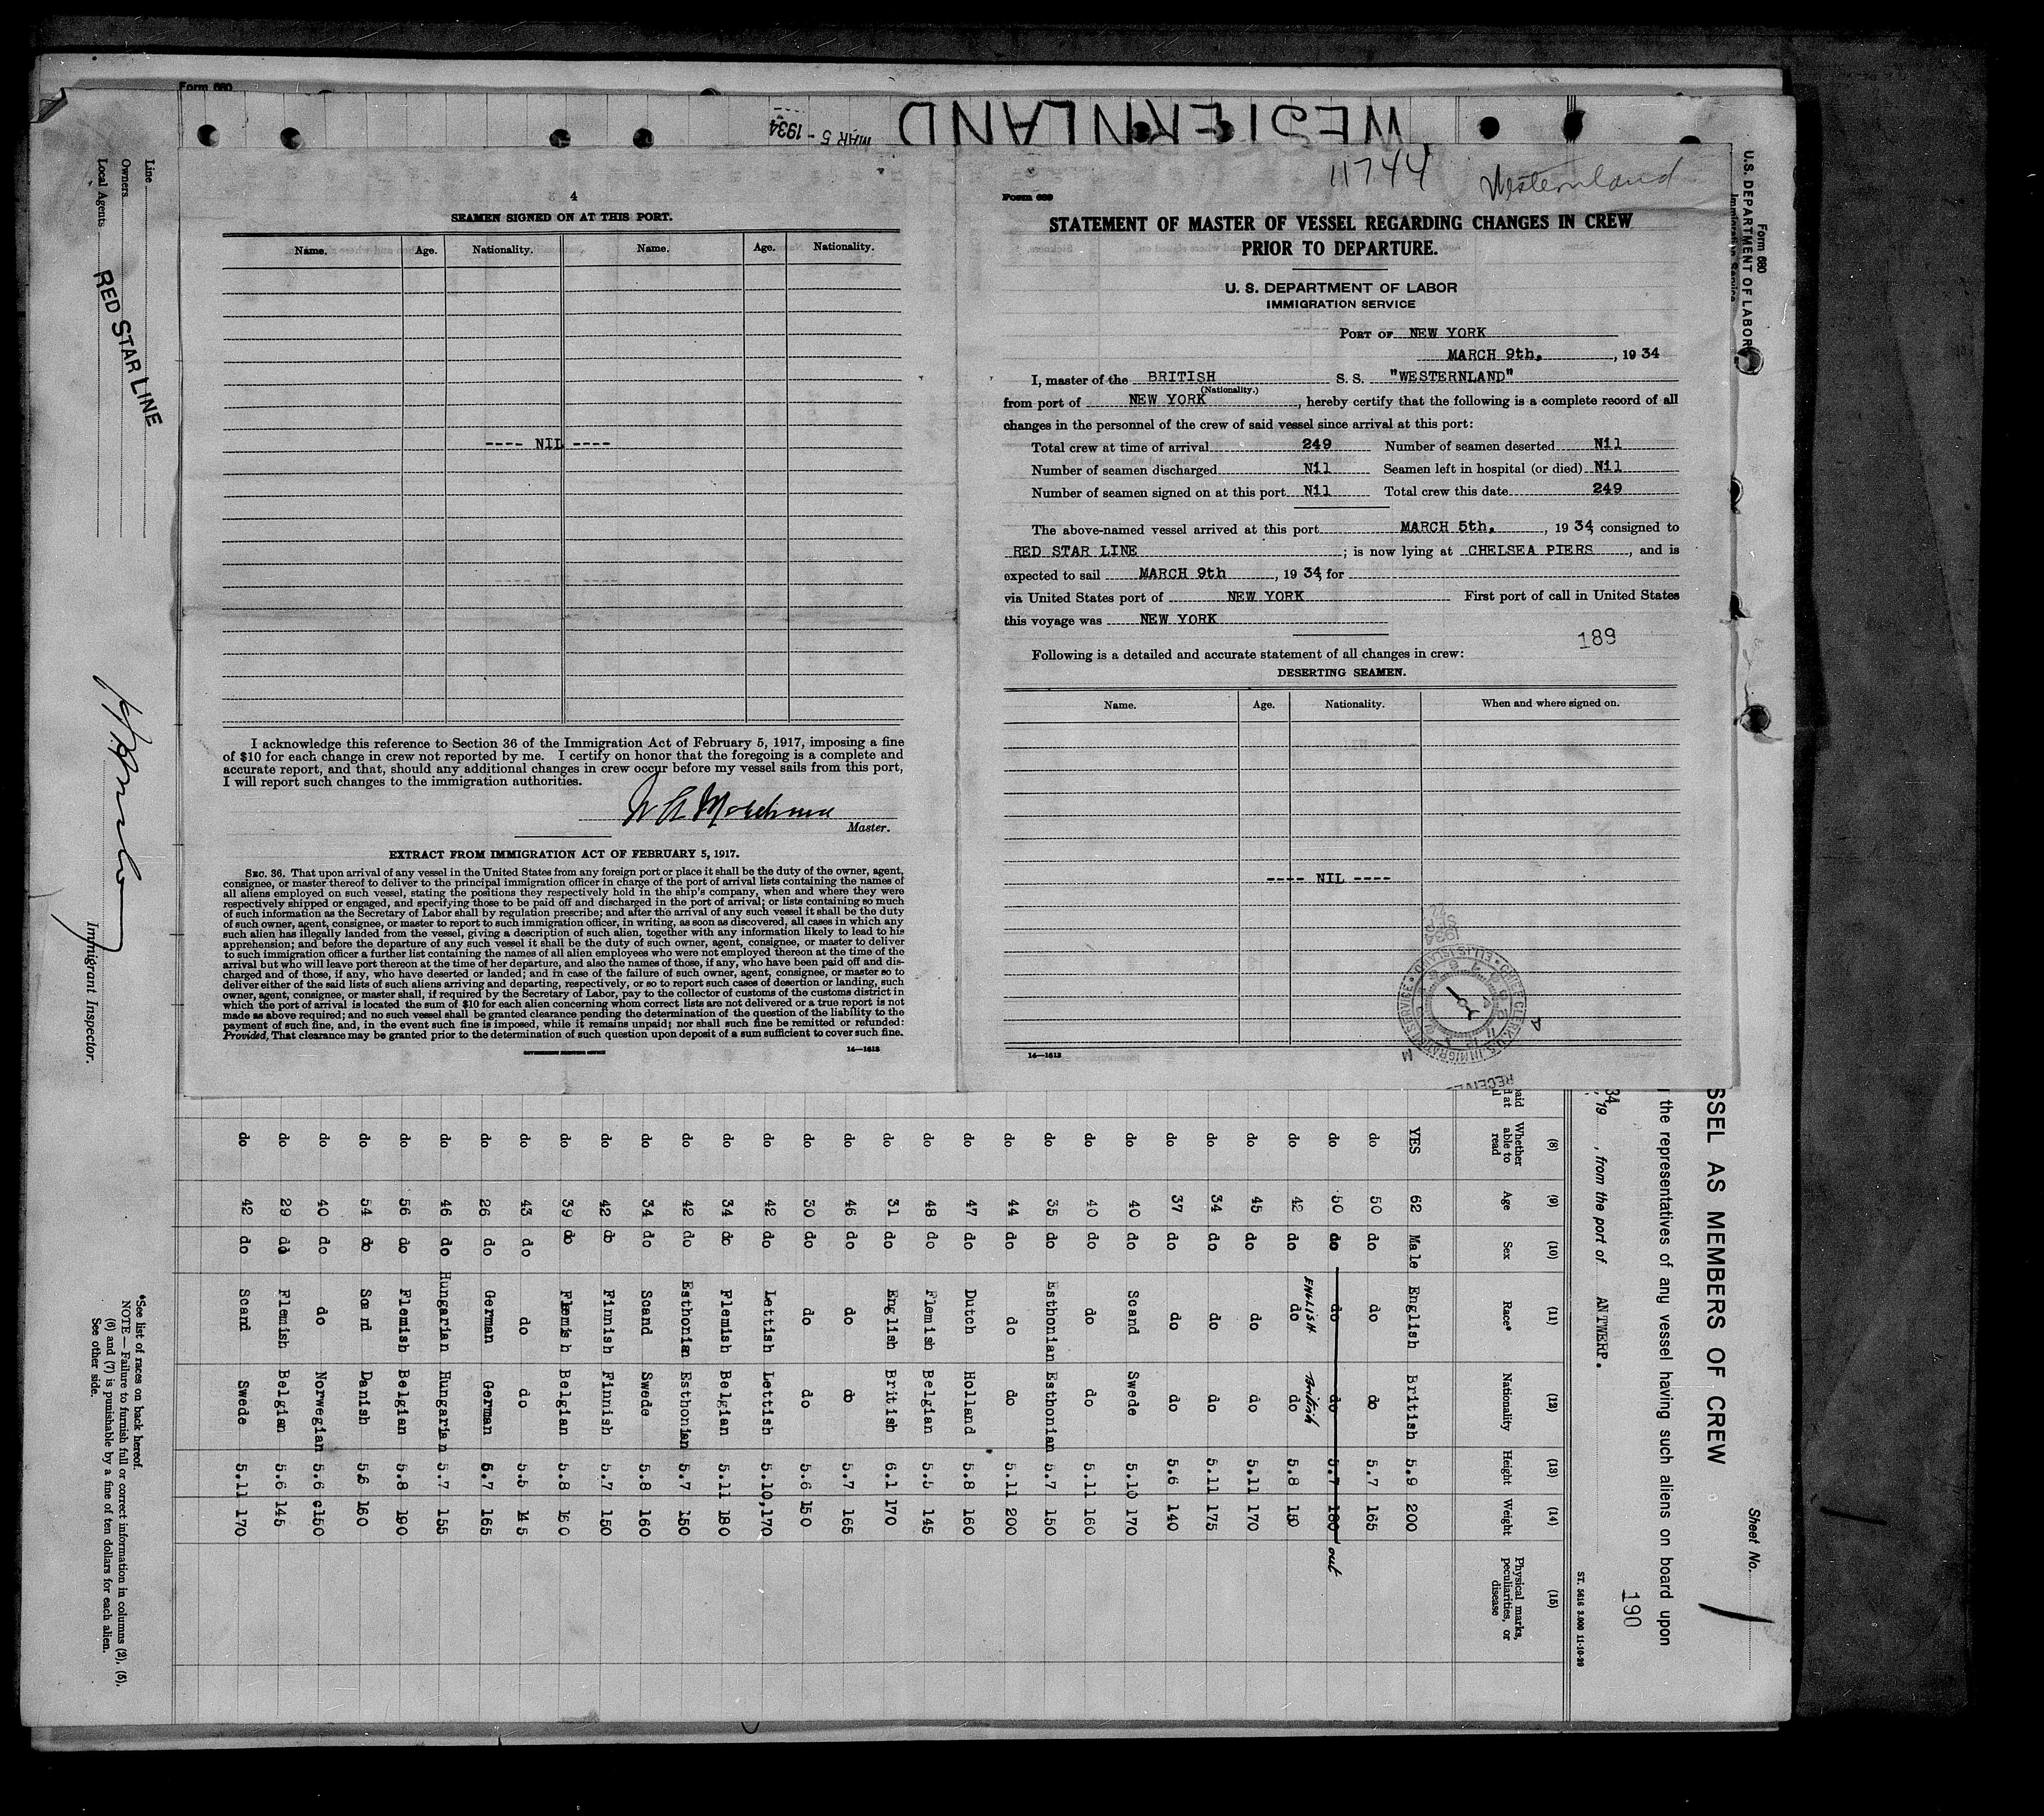 Form 680
WESTERNLAND
MAR 5 - 1934
4
SEAMEN SIGNED ON AT THIS PORT.
Name. Age. Nationality. Name. Age. Nationality.
---- NIL ----
I acknowledge this reference to Section 36 of the Immigration Act of February 5, 1917, imposing a fine
of $10 for each change in crew not reported by me. I certify on honor that the foregoing is a complete and
accurate report, and that, should any additional changes in crew occur before my vessel sails from this port,
I will report such changes to the immigration authorities.
Master.
EXTRACT FROM IMMIGRATION ACT OF FEBRUARY 5, 1917.
SEC. 36. That upon arrival of any vessel in the United States from any foreign port or place it shall be the duty of the owner, agent,
consignee, or master thereof to deliver to the principal immigration officer in charge of the port of arrival lists containing the names of
all aliens employed on such vessel, stating the positions they respectively hold in the ship's company, when and where they were
respectively shipped or engaged, and specifying those to be paid off and discharged in the port of arrival; or lists containing so much
of such information as the Secretary of Labor shall by regulation prescribe; and after the arrival of any such vessel it shall be the duty
of such owner, agent, consignee, or master to report to such immigration officer, in writing, as soon as discovered, all cases in which any
such alien has illegally landed from the vessel, giving a description of such alien, together with any information likely to lead to his
apprehension; and before the departure of any such vessel it shall be the duty of such owner, agent, consignee, or master to deliver
to such immigration officer a further list containing the names of all alien employees who were not employed thereon at the time of the
arrival but who will leave port thereon at the time of her departure, and also the names of those, if any, who have been paid off and dis-
charged and of those, if any, who have deserted or landed; and in case of the failure of such owner, agent, consignee, or master so to
deliver either of the said lists of such aliens arriving and departing, respectively, or so to report such cases of desertion or landing, such
owner, agent, consignee, or master shall, if required by the Secretary of Labor, pay to the collector of customs of the customs district in
which the port of arrival is located the sum of $10 for each alien concerning whom correct lists are not delivered or a true report is not
made as above required; and no such vessel shall be granted clearance pending the determination of the question of the liability to the
payment of such fine, and, in the event such fine is imposed, while it remains unpaid; nor shall such fine be remitted or refunded:
Provided, That clearance may be granted prior to the determination of such question upon deposit of a sum sufficient to cover such fine.
GOVERNMENT PRINTING OFFICE
14—1613
11744 Westernland
Form 689
STATEMENT OF MASTER OF VESSEL REGARDING CHANGES IN CREW
PRIOR TO DEPARTURE.
U. S. DEPARTMENT OF LABOR
IMMIGRATION SERVICE
PORT OF NEW YORK
MARCH 9th. , 19 34
I, master of the BRITISH S. S. "WESTERNLAND"
(Nationality.)
from port of NEW YORK , hereby certify that the following is a complete record of all
changes in the personnel of the crew of said vessel since arrival at this port:
Total crew at time of arrival 249 Number of seamen deserted Nil
Number of seamen discharged Nil Seamen left in hospital (or died) Nil
Number of seamen signed on at this port Nil Total crew this date 249
The above-named vessel arrived at this port MARCH 5th. , 19 34, consigned to
RED STAR LINE ; is now lying at CHELSEA PIERS , and is
expected to sail MARCH 9th , 19 34, for
via United States port of NEW YORK First port of call in United States
this voyage was NEW YORK
189
Following is a detailed and accurate statement of all changes in crew:
DESERTING SEAMEN.
Name. Age. Nationality. When and where signed on.
---- NIL ----
1934
CHIEF CLERK U.S. IMMIGRATION SERVICE • ELLIS ISLAND
A M
14—1613
RECEIVE
Form 680
U. S. DEPARTMENT OF LABOR
Immigration Service
Sheet No.
SSEL AS MEMBERS OF CREW
the representatives of any vessel having such aliens on board upon
190
34
, 19 , from the port of ANTWERP.
ST. 5616 3.000 11-10-29
(8) (9) (10) (11) (12) (13) (14) (15)
Whether able to read Age Sex Race* Nationality Height Weight Physical marks, peculiarities, or disease
YES 62 Male English British 5.9 200
do 50 do do do 5.7 165
do 50 do do do 5.7 180 out
ENGLISH British
do 42 do do do 5.8 150
do 45 do do do 5.11 170
do 34 do do do 5.11 175
do 37 do do do 5.6 140
do 40 do Scand Swede 5.10 170
do 40 do do do 5.11 160
do 35 do Esthonian Esthonian 5.7 150
do 44 do do do 5.11 200
do 47 do Dutch Holland 5.8 160
do 48 do Flemish Belgian 5.5 145
do 31 do English British 6.1 170
do 46 do do do 5.7 165
do 30 do do do 5.6 150
do 42 do Lettish Lettish 5.10, 170
do 34 do Flemish Belgian 5.11 190
do 42 do Esthonian Esthonian 5.7 150
do 34 do Scand Swede 5.8 160
do 42 do Finnish Finnish 5.7 150
do 39 do Flemish Belgian 5.8 160
do 43 do do do 5.5 145
do 26 do German German 5.7 165
do 46 do Hungarian Hungarian 5.7 155
do 56 do Flemish Belgian 5.8 190
do 54 do Scand Danish 5.6 160
do 40 do do Norwegian 5.6 150
do 29 do Flemish Belgian 5.6 145
do 42 do Scand Swede 5.11 170
Line
Owners
Local Agents
RED STAR LINE
Immigrant Inspector.
*See list of races on back hereof.
NOTE.—Failure to furnish full or correct information in columns (2), (5),
(6) and (7) is punishable by a fine of ten dollars for each alien.
See other side.